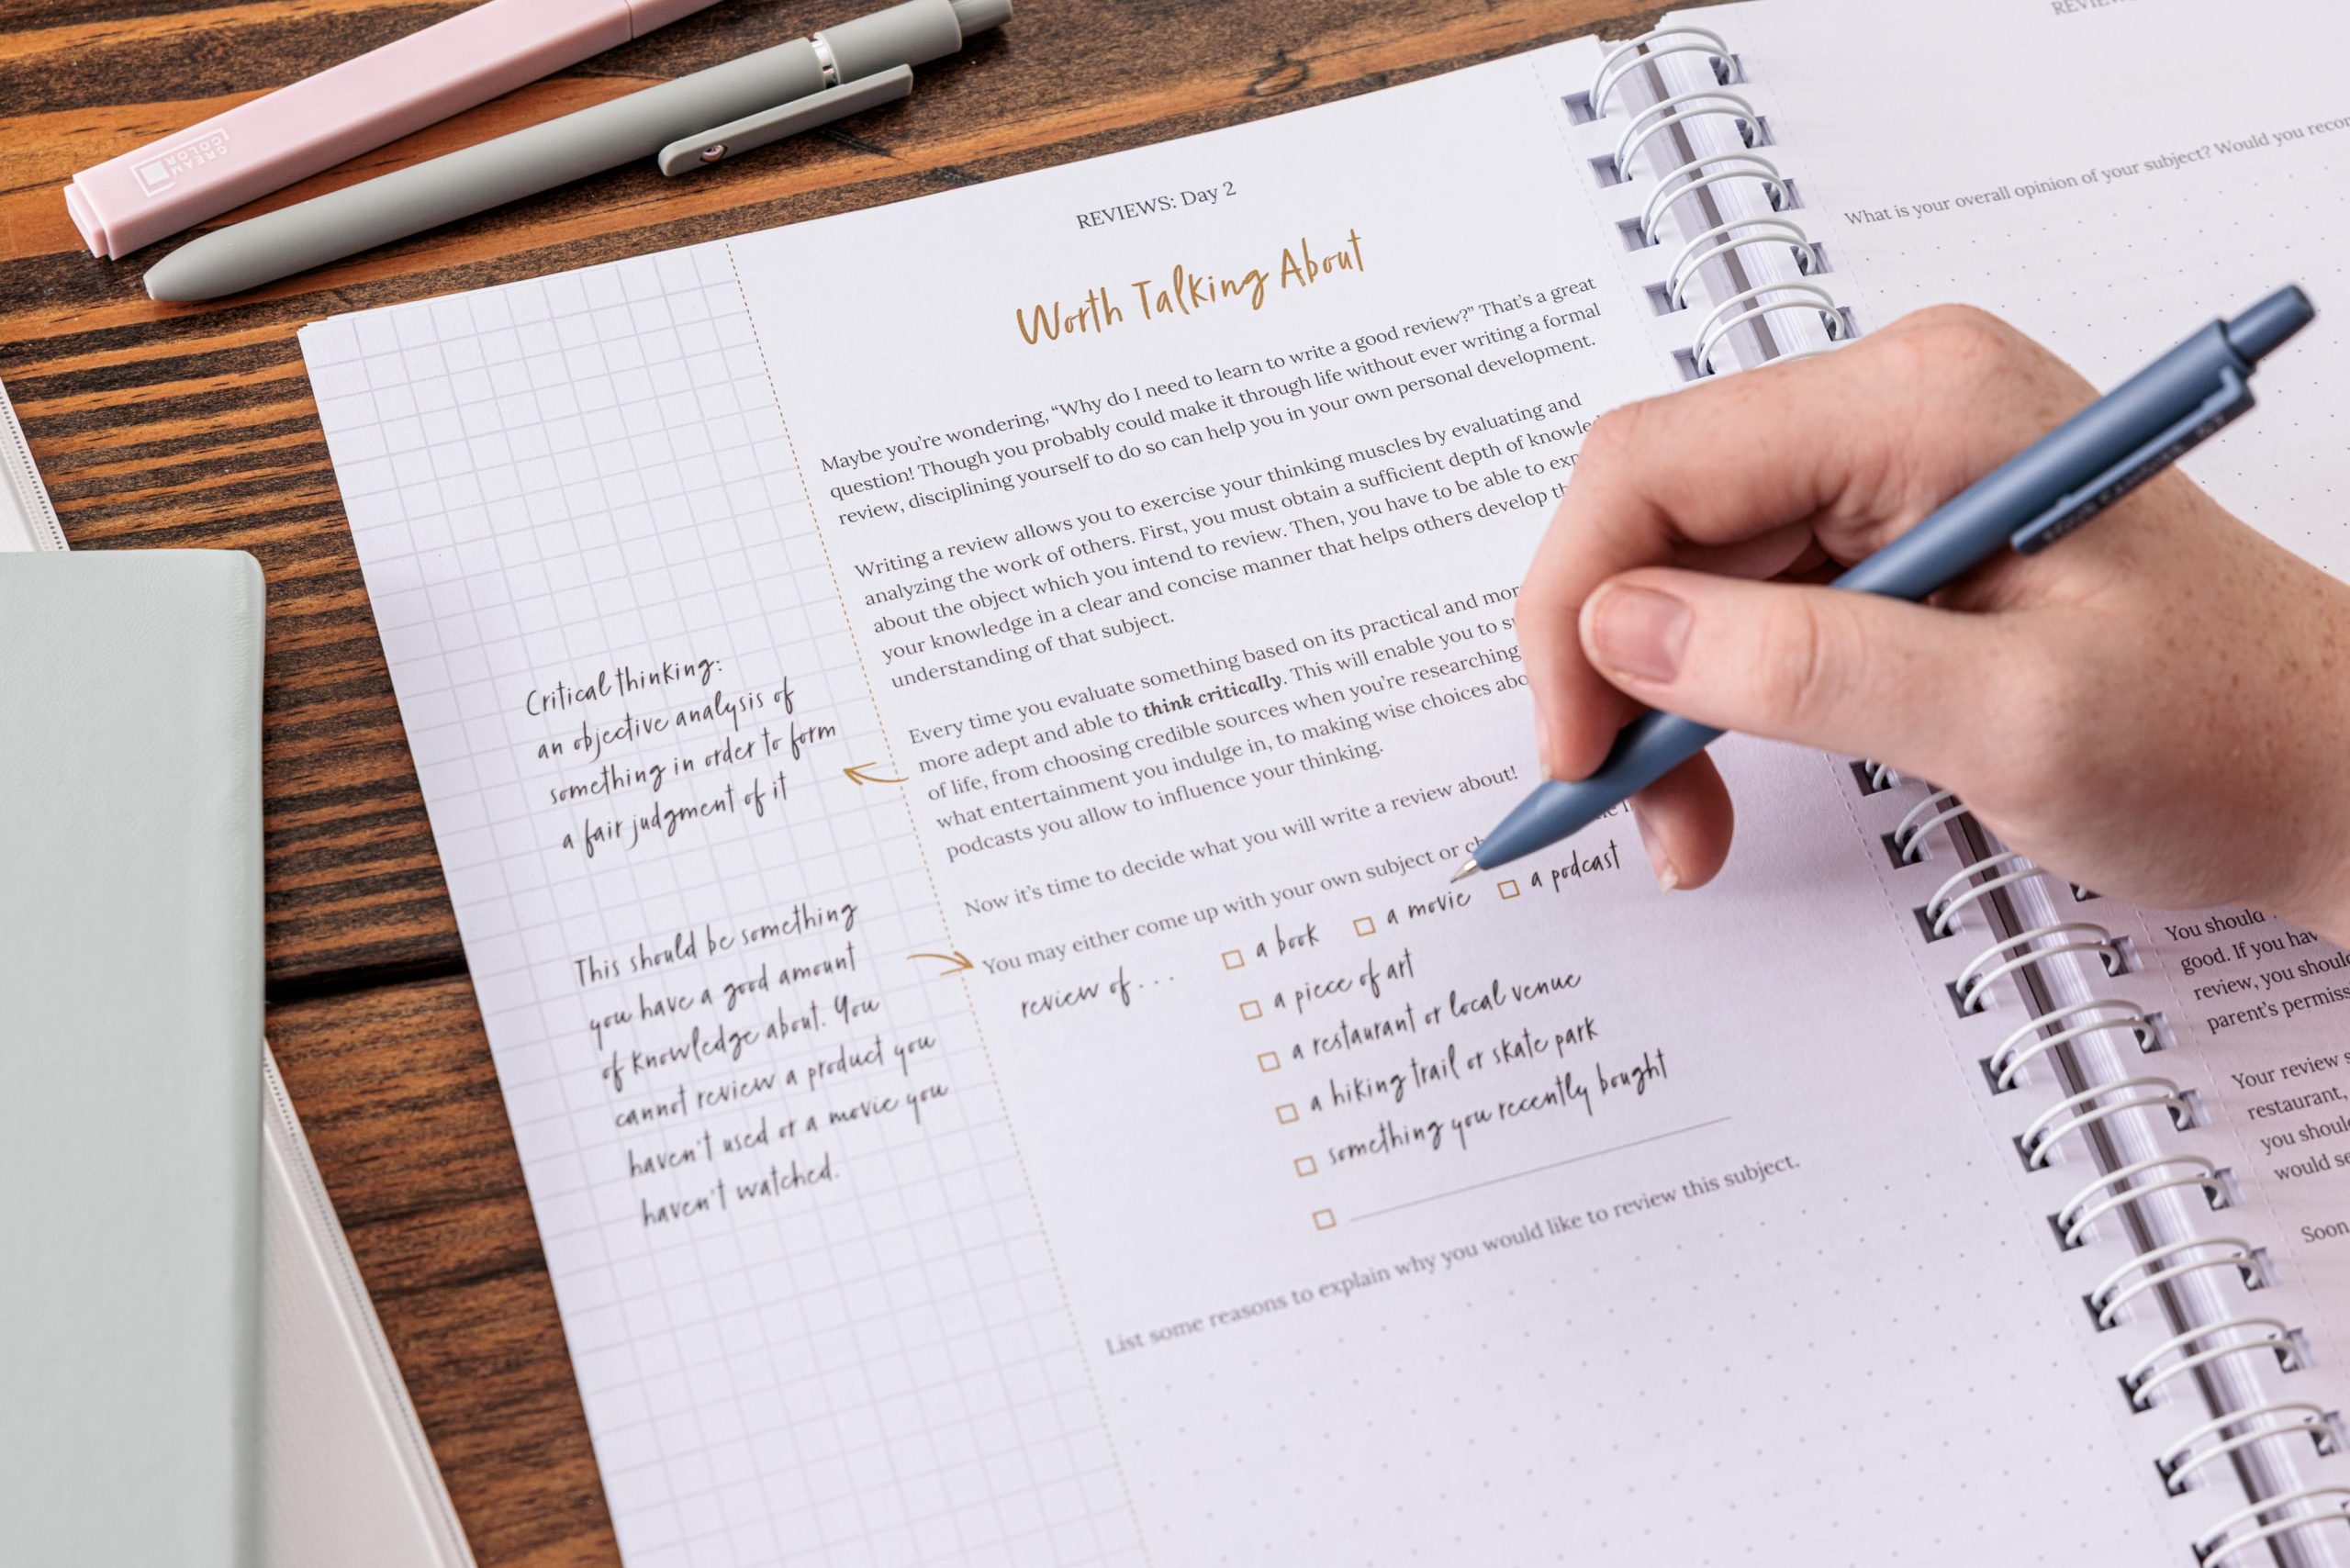 CREAM
COLOR
REVIEWS: Day 2
Worth Talking About
Maybe you're wondering, “Why do I need to learn to write a good review?” That's a great
question! Though you probably could make it through life without ever writing a formal
review, disciplining yourself to do so can help you in your own personal development.
Writing a review allows you to exercise your thinking muscles by evaluating and
analyzing the work of others. First, you must obtain a sufficient depth of
about the object which you intend to review. Then, you have to be able to
your knowledge in a clear and concise manner that helps others develop
understanding of that subject.
Every time you evaluate something based on its practical and
more adept and able to think critically. This will enable you to
of life, from choosing credible sources when you're researching
what entertainment you indulge in, to making wise choices
podcasts you allow to influence your thinking.
Now it's time to decide what you will write a review about!
You may either come up with your own subject or
review of...
a book
a movie
a podcast
a piece of art
a restaurant or local venue
a hiking trail or skate park
something you recently bought
List some reasons to explain why you would like to review this subject.
Critical thinking:
an objective analysis of
something in order to form
a fair judgment of it
This should be something
you have a good amount
of knowledge about. You
cannot review a product you
haven't used or a movie you
haven't watched.
What is your overall opinion of your subject? Would you
You should
good. If you
review, you
parent's
Your review
restaurant,
you
would
Soon